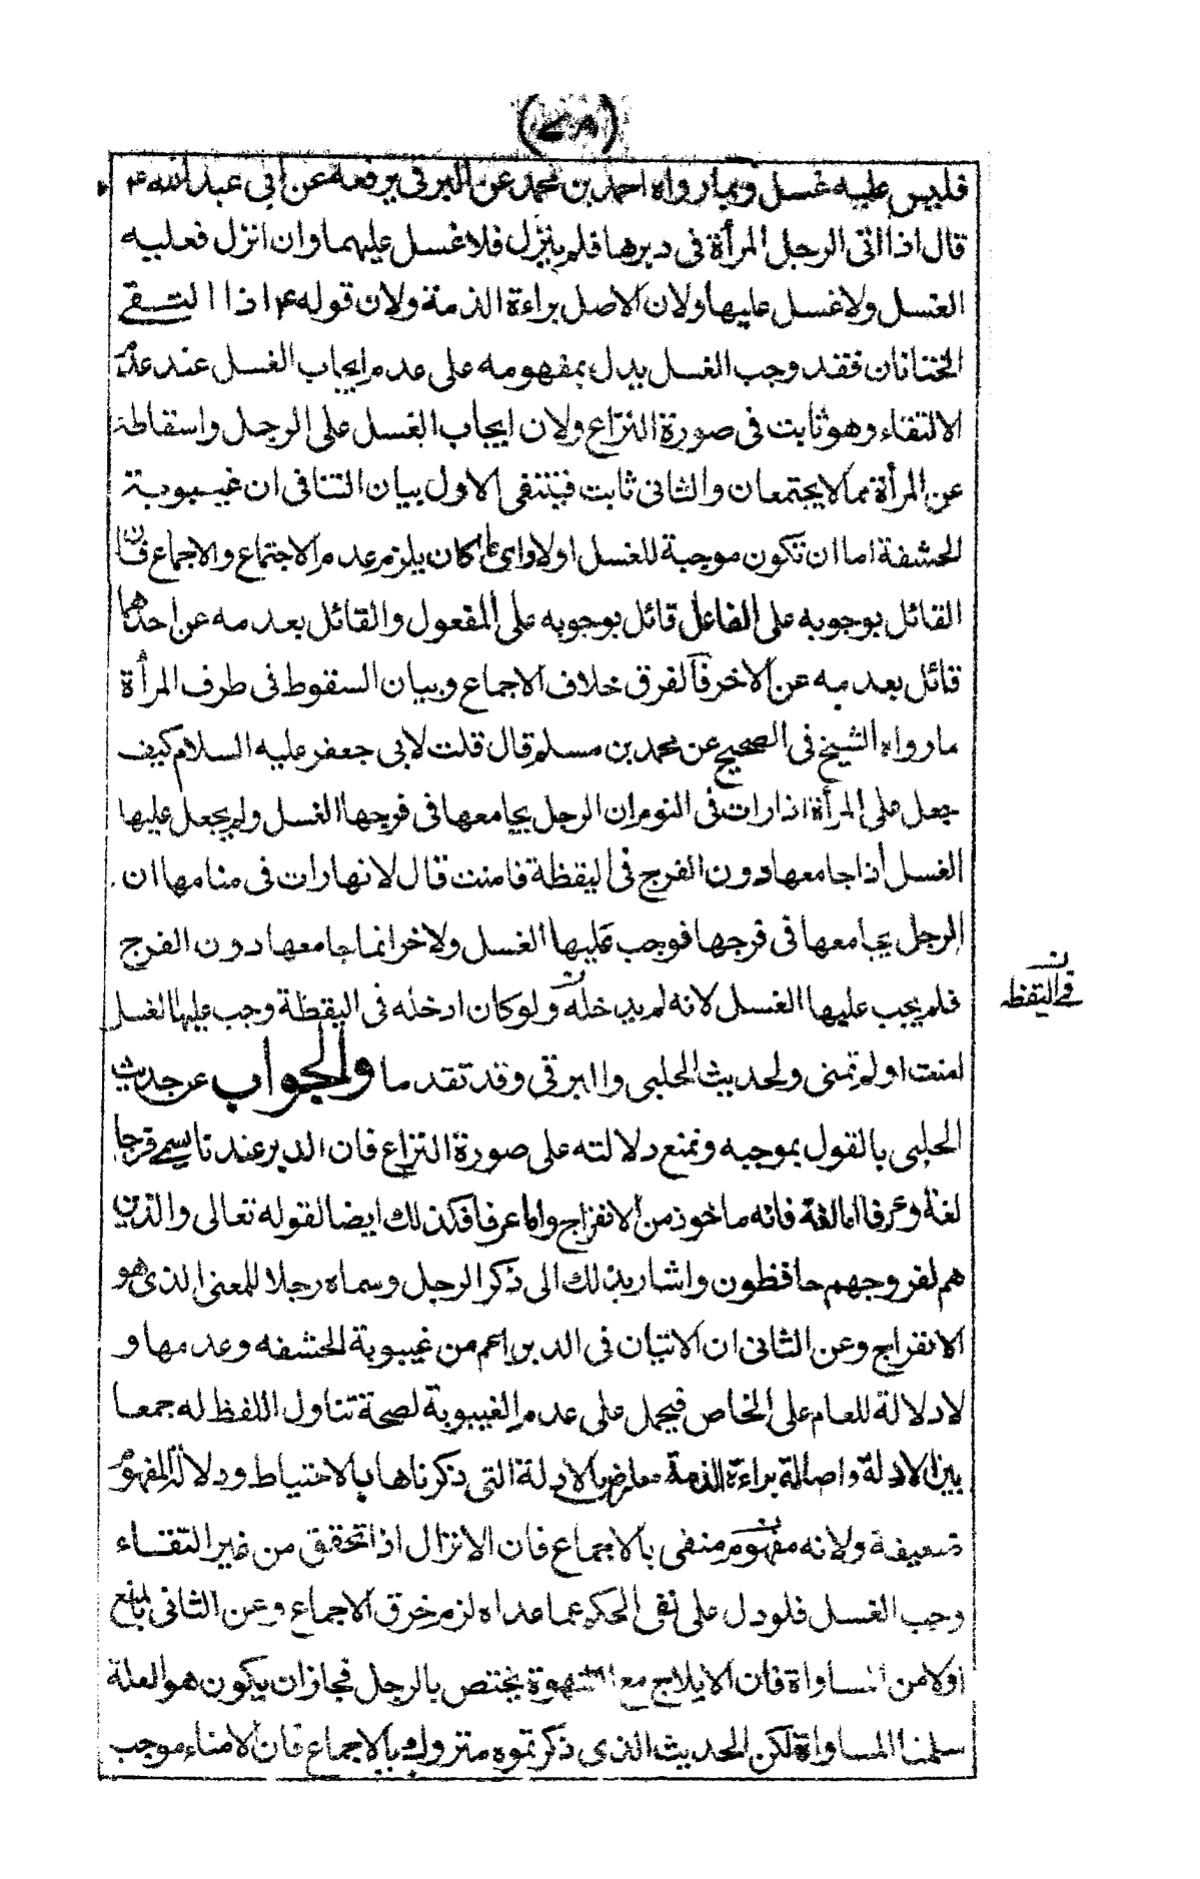 فليس عليه غسل وبما رواه احمد بن محمد عن البرقى يرفعه عن ابى عبد الله ع
قال اذا اتى الرجل المرأة فى دبرها فلم ينزل فلا غسل عليهما وان انزل فعليه
الغسل ولا غسل عليها ولان الاصل براءة الذمة ولان قوله ع اذا التقى
الختانان فقد وجب الغسل يدل بمفهومه على عدم ايجاب الغسل عند عدم
الالتقاء وهو ثابت فى صورة النزاع ولان ايجاب الغسل على الرجل واسقاطه
عن المرأة مما لا يجتمعان والثانى ثابت فينتفى الاول بيان التنافى ان غيبوبة
الحشفة اما ان تكون موجبة للغسل اولا واى ما كان يلزم عدم الاجتماع والاجماع فان
القائل بوجوبه على الفاعل قائل بوجوبه على المفعول والقائل بعدمه عن احدهما
قائل بعدمه عن الاخر فالفرق خلاف الاجماع وبيان السقوط فى طرف المرأة
ما رواه الشيخ فى الصحيح عن محمد بن مسلم قال قلت لابى جعفر عليه السلام كيف
جعل على المرأة اذا رات فى النوم ان الرجل يجامعها فى فرجها الغسل ولم يجعل عليها
الغسل اذا جامعها دون الفرج فى اليقظة فامنت قال لانها رات فى منامها ان
الرجل يجامعها فى فرجها فوجب عليها الغسل ولاخر انما جامعها دون الفرج
فلم يجب عليها الغسل لانه لم يدخله ولو كان ادخله فى اليقظة وجب عليها الغسل
فى اليقظه
امنت او لم تمنى ولحديث الحلبى والبرقى وقد تقدما والجواب عن حديث
الحلبى بالقول بموجبه ونمنع دلالته على صورة النزاع فان الدبر عندنا يسمى فرجا
لغة وعرفا اما لغة فانه ماخوذ من الانفراج واما عرفا فكذلك ايضا لقوله تعالى والذين
هم لفروجهم حافظون واشار بذلك الى ذكر الرجل وسماه رجلا للمعنى الذى هو
الانفراج وعن الثانى ان الاتيان فى الدبر اعم من غيبوبة الحشفه وعدمها و
لا دلالة للعام على الخاص فيحمل على عدم الغيبوبة لصحة تناول اللفظ له جمعا
بين الادلة واصالة براءة الذمة معارض بالادلة التى ذكرناها بالاحتياط ودلالة المفهوم
ضعيفة ولانه مفهوم منفى بالاجماع فان الانزال اذا تحقق من غير التقاء
وجب الغسل فلو دل على نفى الحكم عما عداه لزم خرق الاجماع وعن الثانى بالمنع
اولا من المساواة فان الايلاج مع الشهوة يختص بالرجل فجاز ان يكون هو العلة
سلمنا المساواة لكن الحديث الذى ذكرتموه متروك بالاجماع فان الامناء موجب